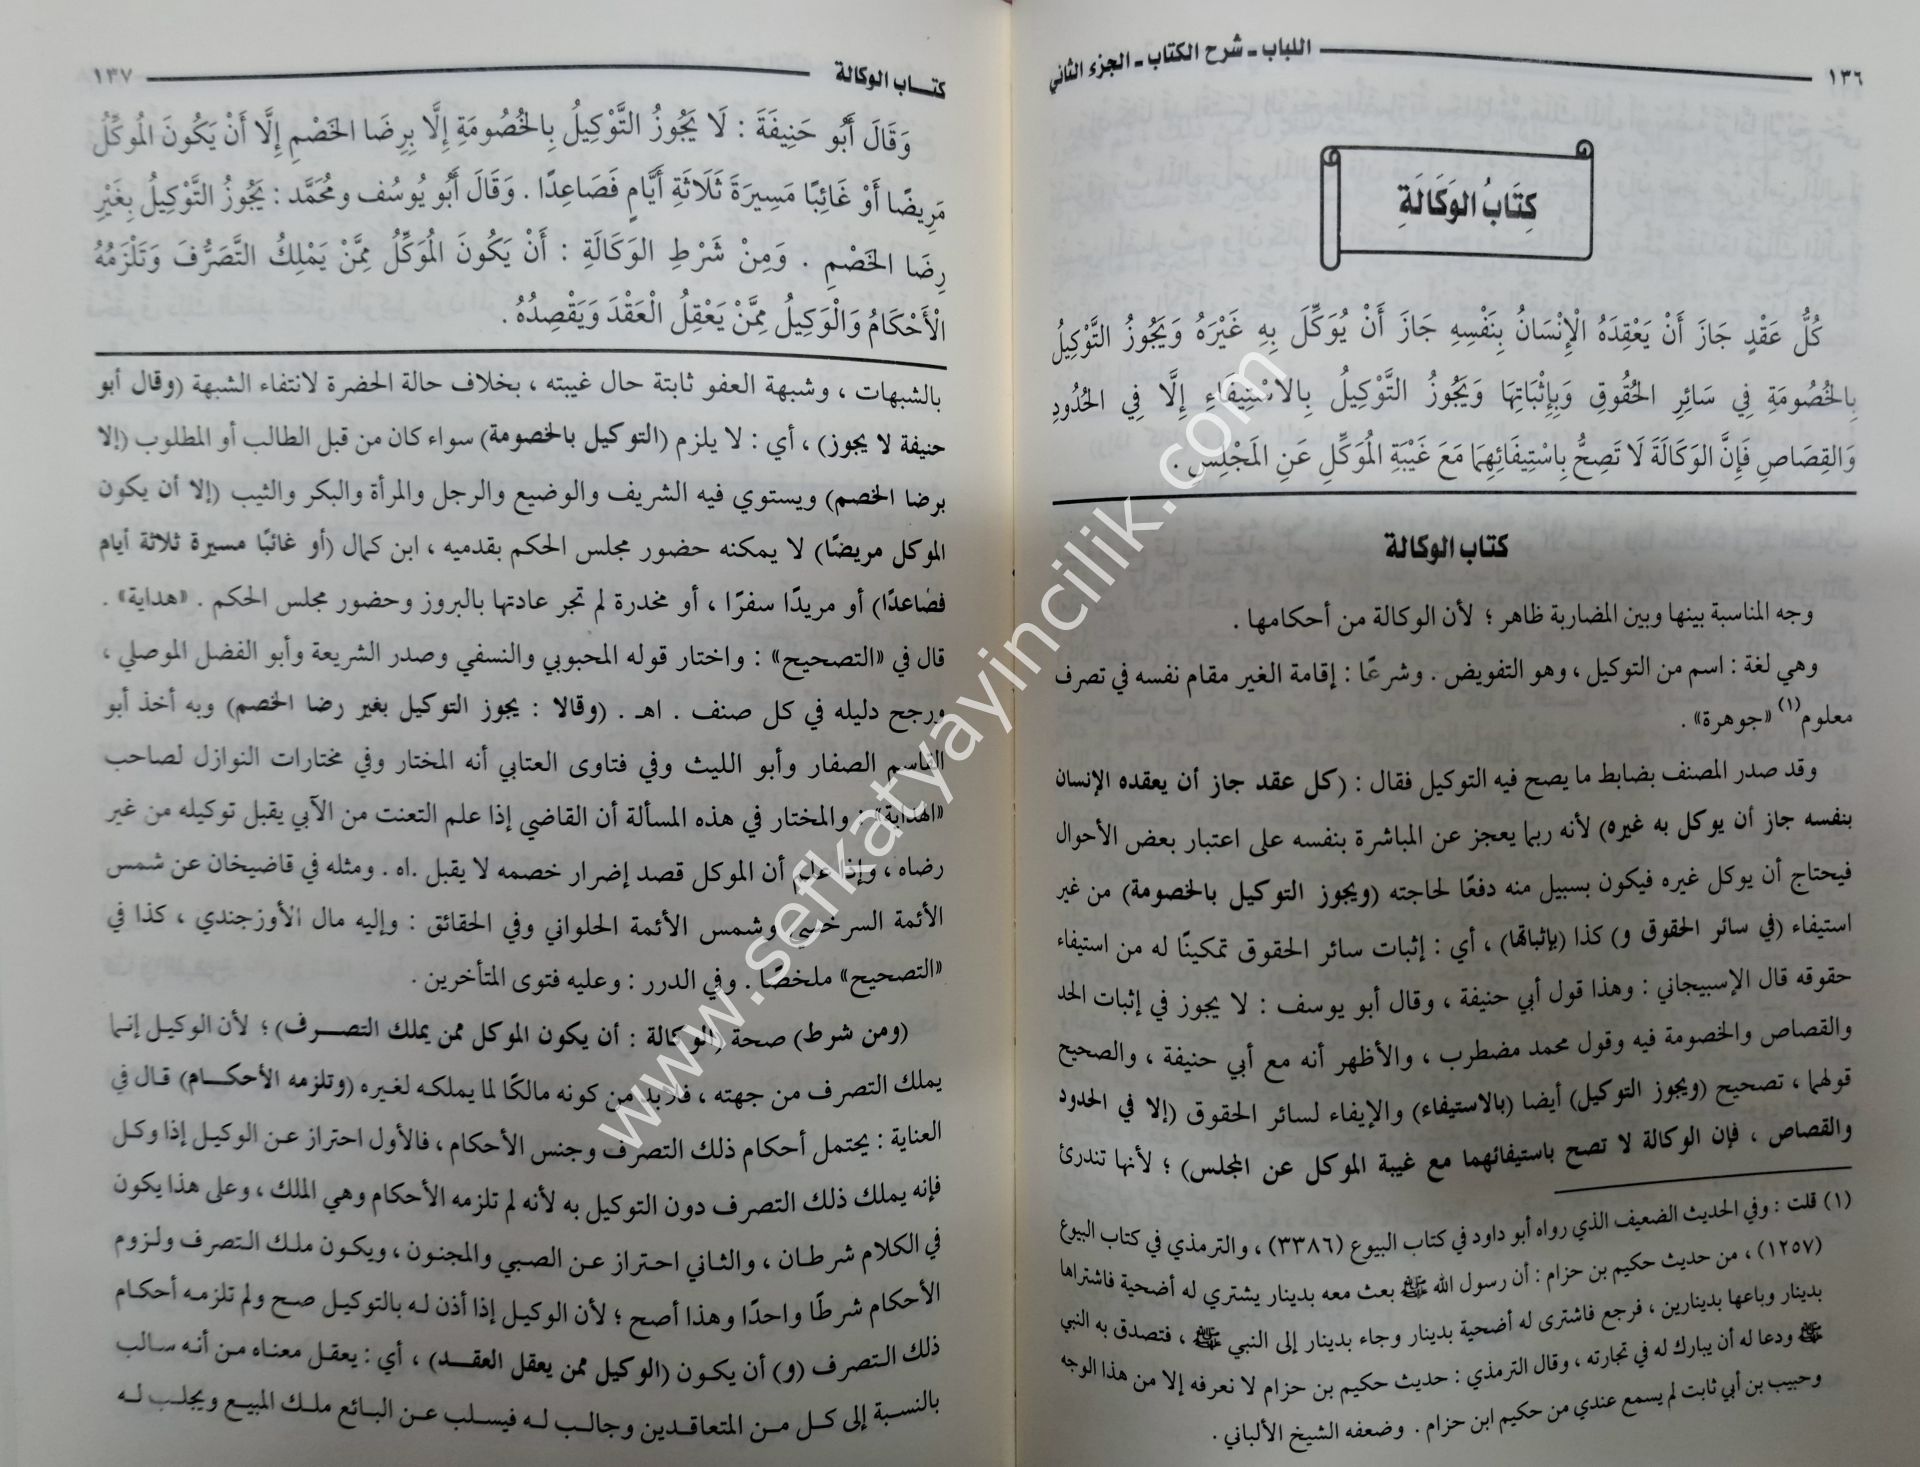 ١٣٦ اللباب ـ شرح الكتاب ـ الجزء الثاني
كِتَابُ الوَكَالَةِ
كُلُّ عَقْدٍ جَازَ أَنْ يَعْقِدَهُ الْإِنْسَانُ بِنَفْسِهِ جَازَ أَنْ يُوَكِّلَ بِهِ غَيْرَهُ وَيَجُوزُ التَّوْكِيلُ
بِالخُصُومَةِ فِي سَائِرِ الحُقُوقِ وَبِإِثْبَاتِهَا وَيَجُوزُ التَّوْكِيلُ بِالاسْتِيفَاءِ إِلَّا فِي الحُدُودِ
وَالقِصَاصِ فَإِنَّ الوَكَالَةَ لَا تَصِحُّ بِاسْتِيفَائِهِمَا مَعَ غَيْبَةِ المُوَكِّلِ عَنِ المَجْلِسِ .
كتاب الوكالة
وجه المناسبة بينها وبين المضاربة ظاهر ؛ لأن الوكالة من أحكامها .
وهي لغة : اسم من التوكيل ، وهو التفويض . وشرعًا : إقامة الغير مقام نفسه في تصرف
معلوم(١) «جوهرة» .
وقد صدر المصنف بضابط ما يصح فيه التوكيل فقال : (كل عقد جاز أن يعقده الإنسان
بنفسه جاز أن يوكل به غيره) لأنه ربما يعجز عن المباشرة بنفسه على اعتبار بعض الأحوال
فيحتاج أن يوكل غيره فيكون بسبيل منه دفعًا لحاجته (ويجوز التوكيل بالخصومة) من غير
استيفاء (في سائر الحقوق و) كذا (بإثباتها) ، أي : إثبات سائر الحقوق تمكينًا له من استيفاء
حقوقه قال الإسبيجاني : وهذا قول أبي حنيفة ، وقال أبو يوسف : لا يجوز في إثبات الحد
والقصاص والخصومة فيه وقول محمد مضطرب ، والأظهر أنه مع أبي حنيفة ، والصحيح
قولهما ، تصحيح (ويجوز التوكيل) أيضا (بالاستيفاء) والإيفاء لسائر الحقوق (إلا في الحدود
والقصاص ، فإن الوكالة لا تصح باستيفائهما مع غيبة الموكل عن المجلس) ؛ لأنها تندرئ
(١) قلت : وفي الحديث الضعيف الذي رواه أبو داود في كتاب البيوع (٣٣٨٦) ، والترمذي في كتاب البيوع
(١٢٥٧) ، من حديث حكيم بن حزام : أن رسول الله ﷺ بعث معه بدينار يشتري له أضحية فاشتراها
بدينار وباعها بدينارين ، فرجع فاشترى له أضحية بدينار وجاء بدينار إلى النبي ﷺ ، فتصدق به النبي
ﷺ ودعا له أن يبارك له في تجارته ، وقال الترمذي : حديث حكيم بن حزام لا نعرفه إلا من هذا الوجه
وحبيب بن أبي ثابت لم يسمع عندي من حكيم ابن حزام . وضعفه الشيخ الألباني .
كتـــاب الوكالة ١٣٧
وَقَالَ أَبُو حَنِيفَةَ : لَا يَجُوزُ التَّوْكِيلُ بِالخُصُومَةِ إِلَّا بِرِضَا الخَصْمِ إِلَّا أَنْ يَكُونَ المُوَكِّلُ
مَرِيضًا أَوْ غَائِبًا مَسِيرَةَ ثَلَاثَةِ أَيَّامٍ فَصَاعِدًا . وَقَالَ أَبُو يُوسُف ومُحَمَّد : يَجُوزُ التَّوْكِيلُ بِغَيْرِ
رِضَا الخَصْمِ . وَمِنْ شَرْطِ الوَكَالَةِ : أَنْ يَكُونَ المُوَكِّلُ مِمَّنْ يَمْلِكُ التَّصَرُّفَ وَتَلْزَمُهُ
الْأَحْكَامُ وَالْوَكِيلُ مِمَّنْ يَعْقِلُ الْعَقْدَ وَيَقْصِدُهُ .
بالشبهات ، وشبهة العفو ثابتة حال غيبته ، بخلاف حالة الحضرة لانتفاء الشبهة (وقال أبو
حنيفة لا يجوز) ، أي : لا يلزم (التوكيل بالخصومة) سواء كان من قبل الطالب أو المطلوب (إلا
برضا الخصم) ويستوي فيه الشريف والوضيع والرجل والمرأة والبكر والثيب (إلا أن يكون
الموكل مريضًا) لا يمكنه حضور مجلس الحكم بقدميه ، ابن كمال (أو غائبًا مسيرة ثلاثة أيام
فصاعدًا) أو مريدًا سفرًا ، أو مخدرة لم تجر عادتها بالبروز وحضور مجلس الحكم . «هداية» .
قال في «التصحيح» : واختار قوله المحبوبي والنسفي وصدر الشريعة وأبو الفضل الموصلي ،
ورجح دليله في كل صنف . اهـ . (وقالا : يجوز التوكيل بغير رضا الخصم) وبه أخذ أبو
القاسم الصفار وأبو الليث وفي فتاوى العتابي أنه المختار وفي مختارات النوازل لصاحب
«الهداية» : والمختار في هذه المسألة أن القاضي إذا علم التعنت من الآبي يقبل توكيله من غير
رضاه ، وإذا علم أن الموكل قصد إضرار خصمه لا يقبل .اه . ومثله في قاضيخان عن شمس
الأئمة السرخسي وشمس الأئمة الحلواني وفي الحقائق : وإليه مال الأوزجندي ، كذا في
«التصحيح» ملخصًا . وفي الدرر : وعليه فتوى المتأخرين .
(ومن شرط) صحة (الوكالة : أن يكون الموكل ممن يملك التصـــرف) ؛ لأن الوكيل إنما
يملك التصرف من جهته ، فلابد من كونه مالكًا لما يملكه لغيره (وتلزمه الأحكـــام) قال في
العناية : يحتمل أحكام ذلك التصرف وجنس الأحكام ، فالأول احتراز عن الوكيل إذا وكل
فإنه يملك ذلك التصرف دون التوكيل به لأنه لم تلزمه الأحكام وهي الملك ، وعلى هذا يكون
في الكلام شرطان ، والثاني احتراز عن الصبي والمجنون ، ويكون ملك التصرف ولزوم
الأحكام شرطًا واحدًا وهذا أصح ؛ لأن الوكيل إذا أذن له بالتوكيل صح ولم تلزمه أحكام
ذلك التصرف (و) أن يكون (الوكيل ممن يعقل العقـــد) ، أي : يعقل معناه من أنه سالب
بالنسبة إلى كل من المتعاقدين وجالب له فيسلب عن البائع ملك المبيع ويجلب له
www.sefkatyayincilik.com